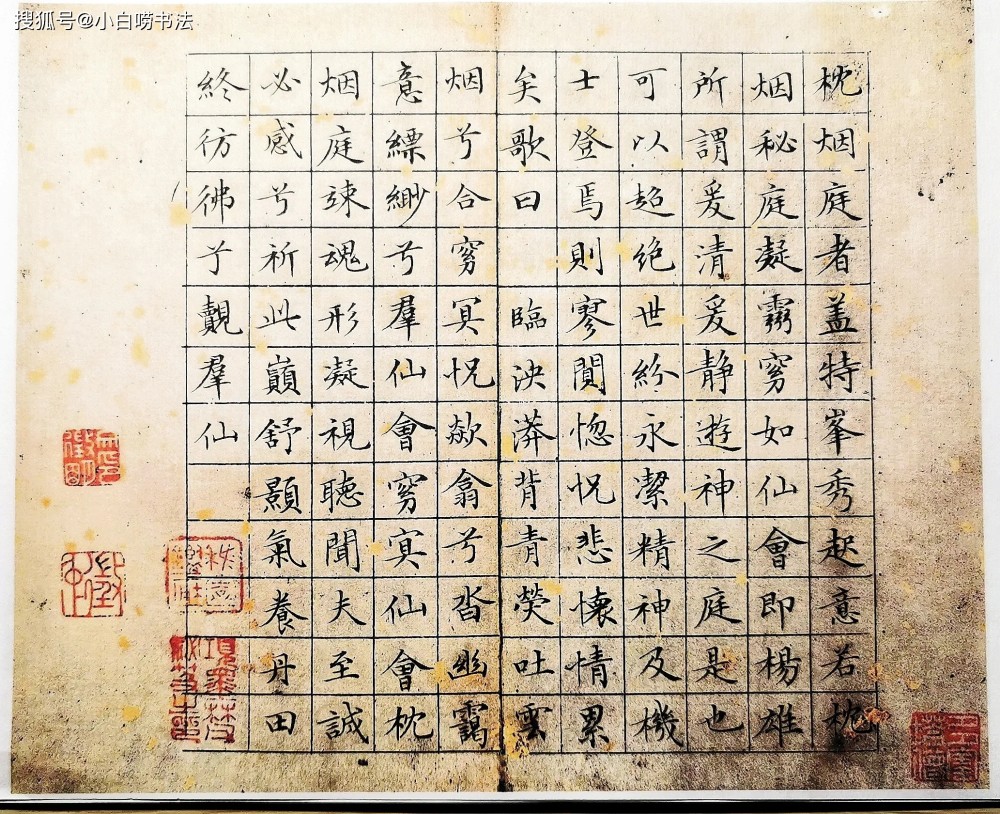 搜狐号@小白唠书法
枕烟庭者盖特峯秀起意若枕
烟秘庭凝霛窈如仙會即楊雄
所謂爰清爰静遊神之庭是也
可以超绝世紛永潔精神及機
士登焉則寥闃惚怳悲懐情累
矣歌曰 臨泱漭背青熒吐雲
烟兮合窈冥怳歘翕兮沓幽靄
意縹緲兮羣仙會窈冥仙會枕
烟庭竦魂形凝視聴聞夫至誠
必感兮祈此巔舒顥氣養丹田
終彷彿兮覿羣仙